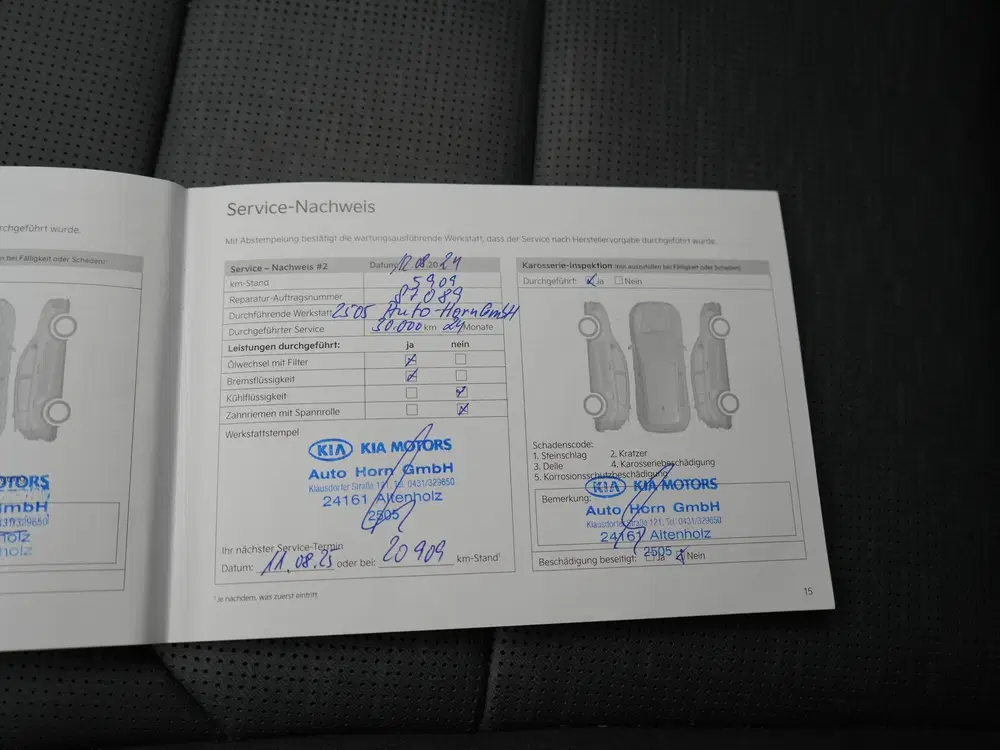 rchgeführt wurde.
en bei Fälligkeit oder Schäden)
OTORS
GmbH
0431/329650
holz
Service-Nachweis
Mit Abstempelung bestätigt die wartungsausführende Werkstatt, dass der Service nach Herstellervorgabe durchgeführt wurde.
Service – Nachweis #2 Datum 12.08.2024
km-Stand 5909
Reparatur-Auftragsnummer 87089
Durchführende Werkstatt 2505 Auto-Horn GmbH
Durchgeführter Service 30.000 km 24 Monate
Leistungen durchgeführt: ja nein
Ölwechsel mit Filter
Bremsflüssigkeit
Kühlflüssigkeit
Zahnriemen mit Spannrolle
Werkstattstempel
KIA KIA MOTORS
Auto Horn GmbH
Klausdorfer Straße 121, Tel. 0431/329650
24161 Altenholz
2505
Ihr nächster Service-Termin
Datum: 11.08.25 oder bei: 20909 km-Stand¹
¹Je nachdem, was zuerst eintritt.
Karosserie-Inspektion (nur auszufüllen bei Fälligkeit oder Schäden)
Durchgeführt: Ja Nein
Schadenscode:
1. Steinschlag 2. Kratzer
3. Delle 4. Karosseriebeschädigung
5. Korrosionsschutzbeschädigung
KIA KIA MOTORS
Bemerkung:
Auto Horn GmbH
Klausdorfer Straße 121, Tel. 0431/329650
24161 Altenholz
2505
Beschädigung beseitigt: Ja Nein
15